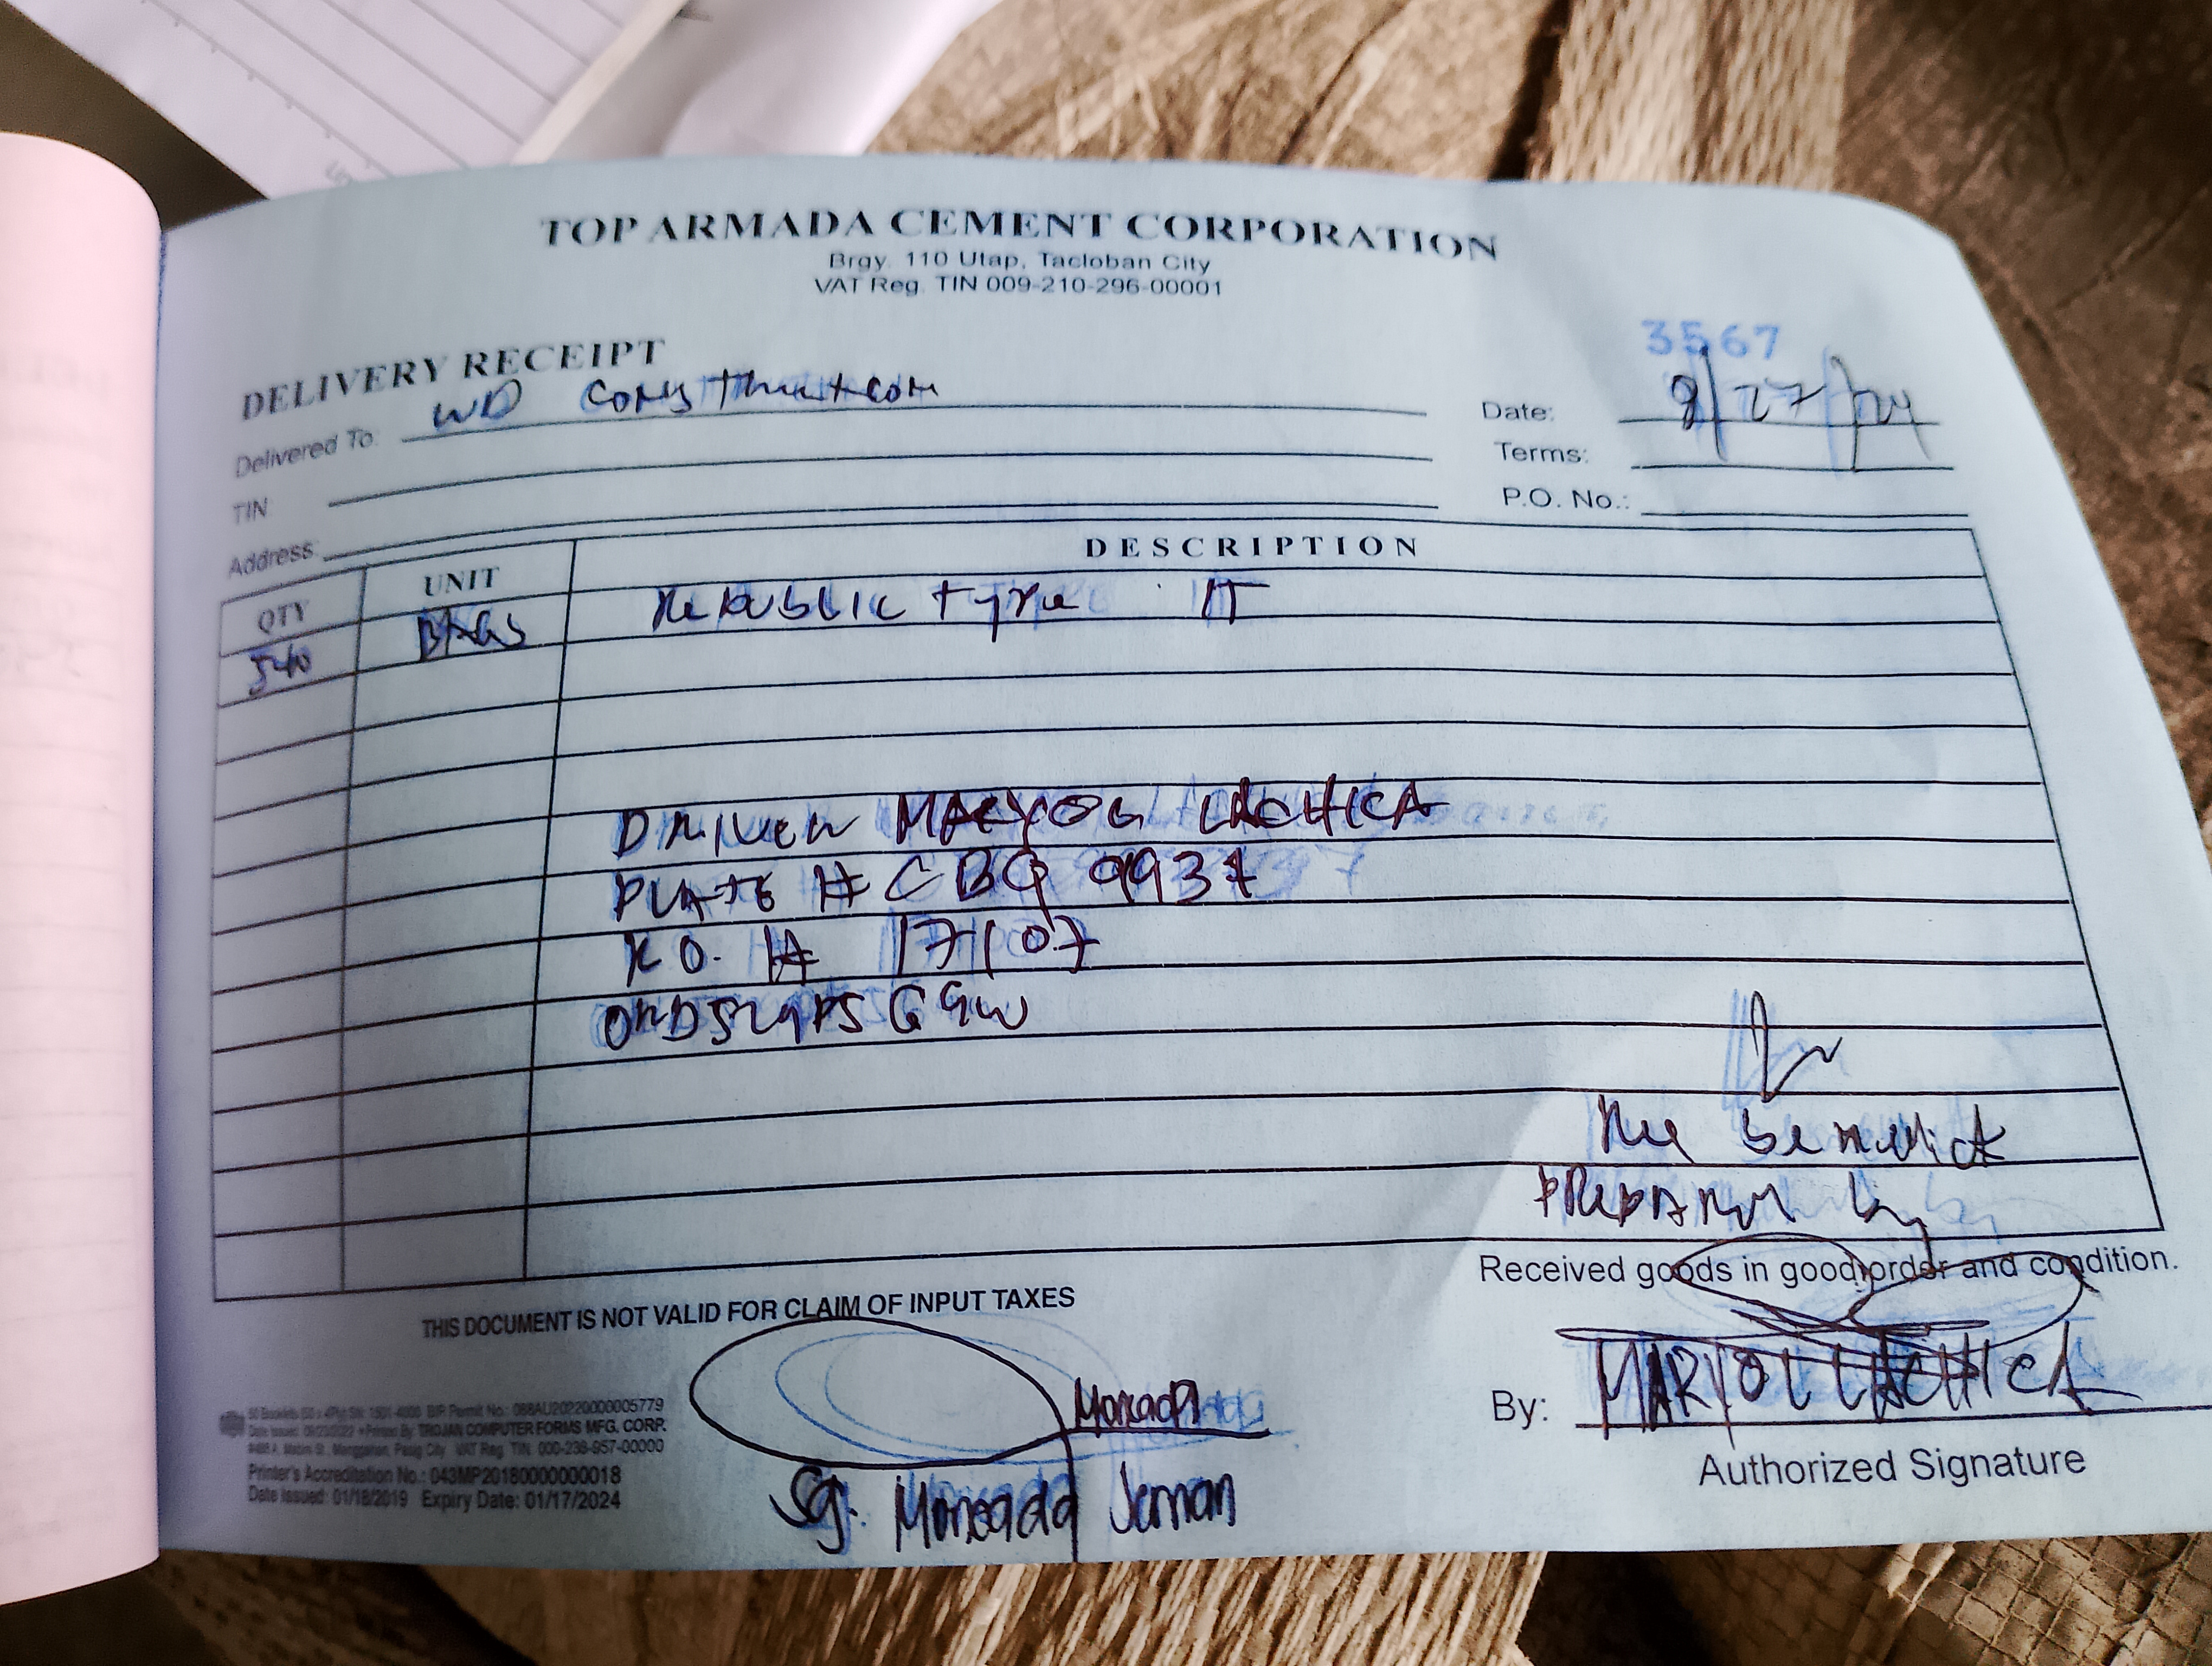 TOP ARMADA CEMENT CORPORATION
Brgy. 110 Utap, Tacloban City
VAT Reg. TIN 009-210-296-00001
3567
DELIVERY RECEIPT
Delivered To: WD Construction
Date: 9/27/24
TIN
Terms:
Address:
P.O. No.:
QTY UNIT DESCRIPTION
540 BAGS Republic type 1T
DRIVER MARYOL LACHICA
PLATE # CBQ 9937
R.O. # 17107
Ree Benedict
PREPARED by
THIS DOCUMENT IS NOT VALID FOR CLAIM OF INPUT TAXES
Received goods in good order and condition.
By: MARYOL LACHICA
Authorized Signature
Moncada
Sg. Moncada Jeman
50 Booklets (50 x 4Ply) BIR Permit No.: 088AU20220000005779
Printed By: TROJAN COMPUTER FORMS MFG. CORP.
Pasig City VAT Reg. TIN 000-238-957-00000
Printer's Accreditation No.: 043MP20180000000018
Date Issued: 01/18/2019 Expiry Date: 01/17/2024